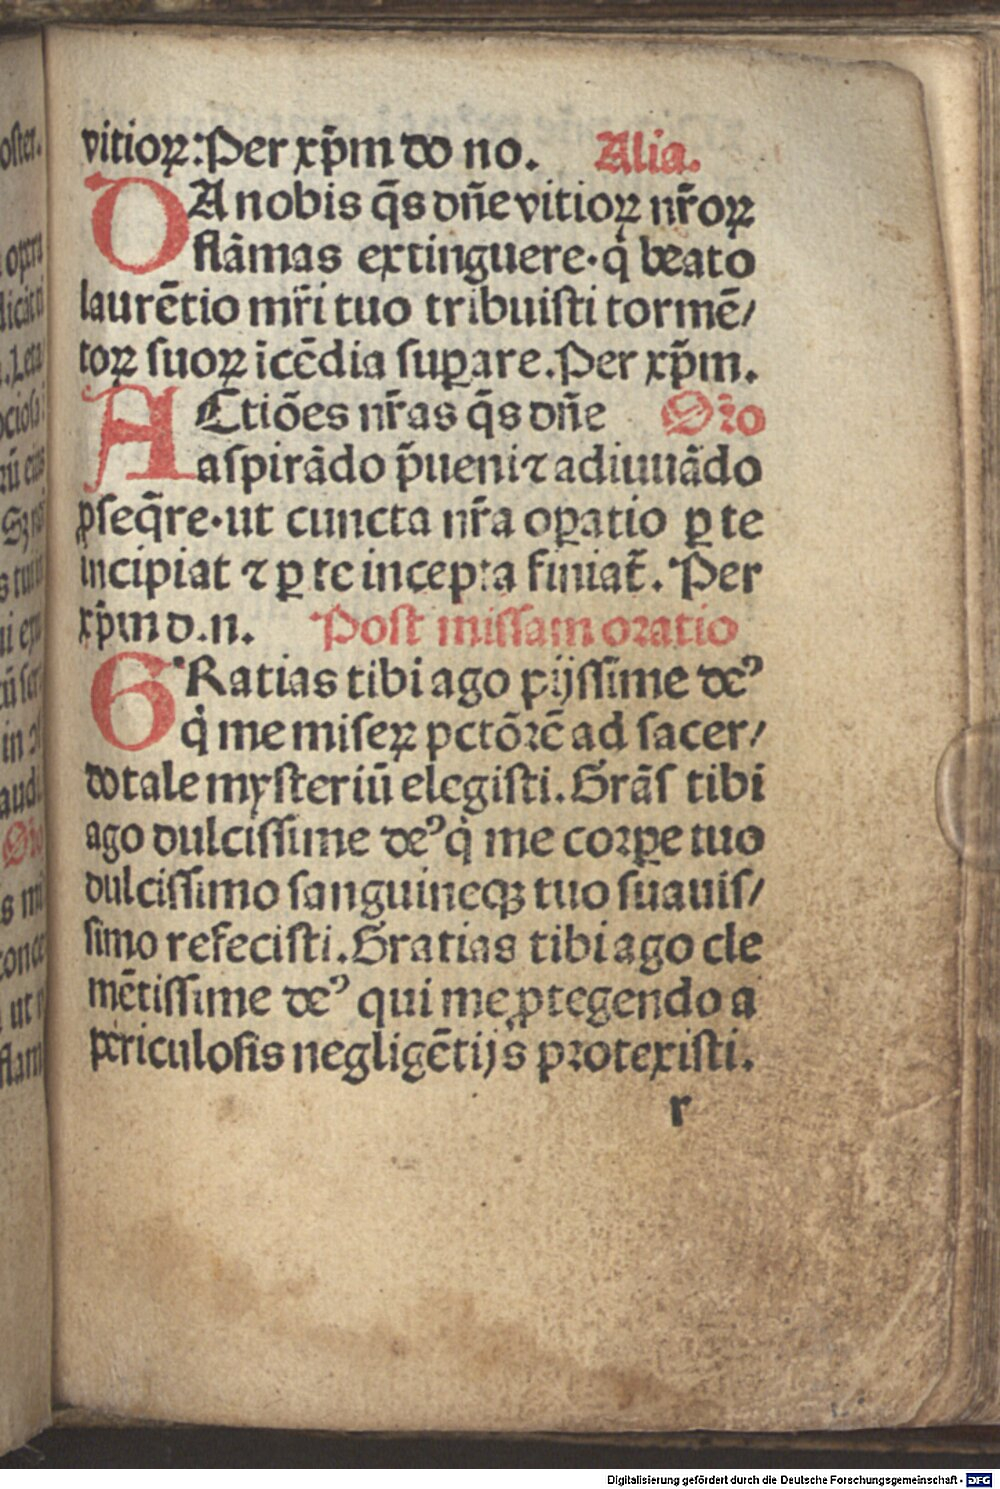 vitioꝝ: Per xp̄m do no. Alia.
DA nobis q̄s dn̄e vitioꝝ nr̄oꝝ
flāmas extinguere. q̇ beato
laurētio mr̄i tuo tribuisti tormē/
toꝝ suoꝝ īcēdia suꝑare. Per xp̄m.
ACtiōes nr̄as q̄s dn̄e Oꝛ̄o
aspirādo p̄ueni ⁊ adiuuādo
ꝓseq̄re. ut cuncta nr̄a oꝑatio ꝑ te
incipiat ⁊ ꝑ te incepta finiat̄. Per
xp̄m d. n. Post missam oꝛatio
GRatias tibi ago pijssime deꝰ
q̇ me miseꝝ pctōꝛē ad sacer/
dotale mysteriū elegisti. Grās tibi
ago dulcissime deꝰ q̇ me coꝛꝑe tuo
dulcissimo sanguineqꝫ tuo suauis/
simo refecisti. Gratias tibi ago cle
mētissime deꝰ qui me ꝓtegendo a
periculosis negligētijs pꝛotexisti.
r
Digitalisierung gefördert durch die Deutsche Forschungsgemeinschaft - DFG